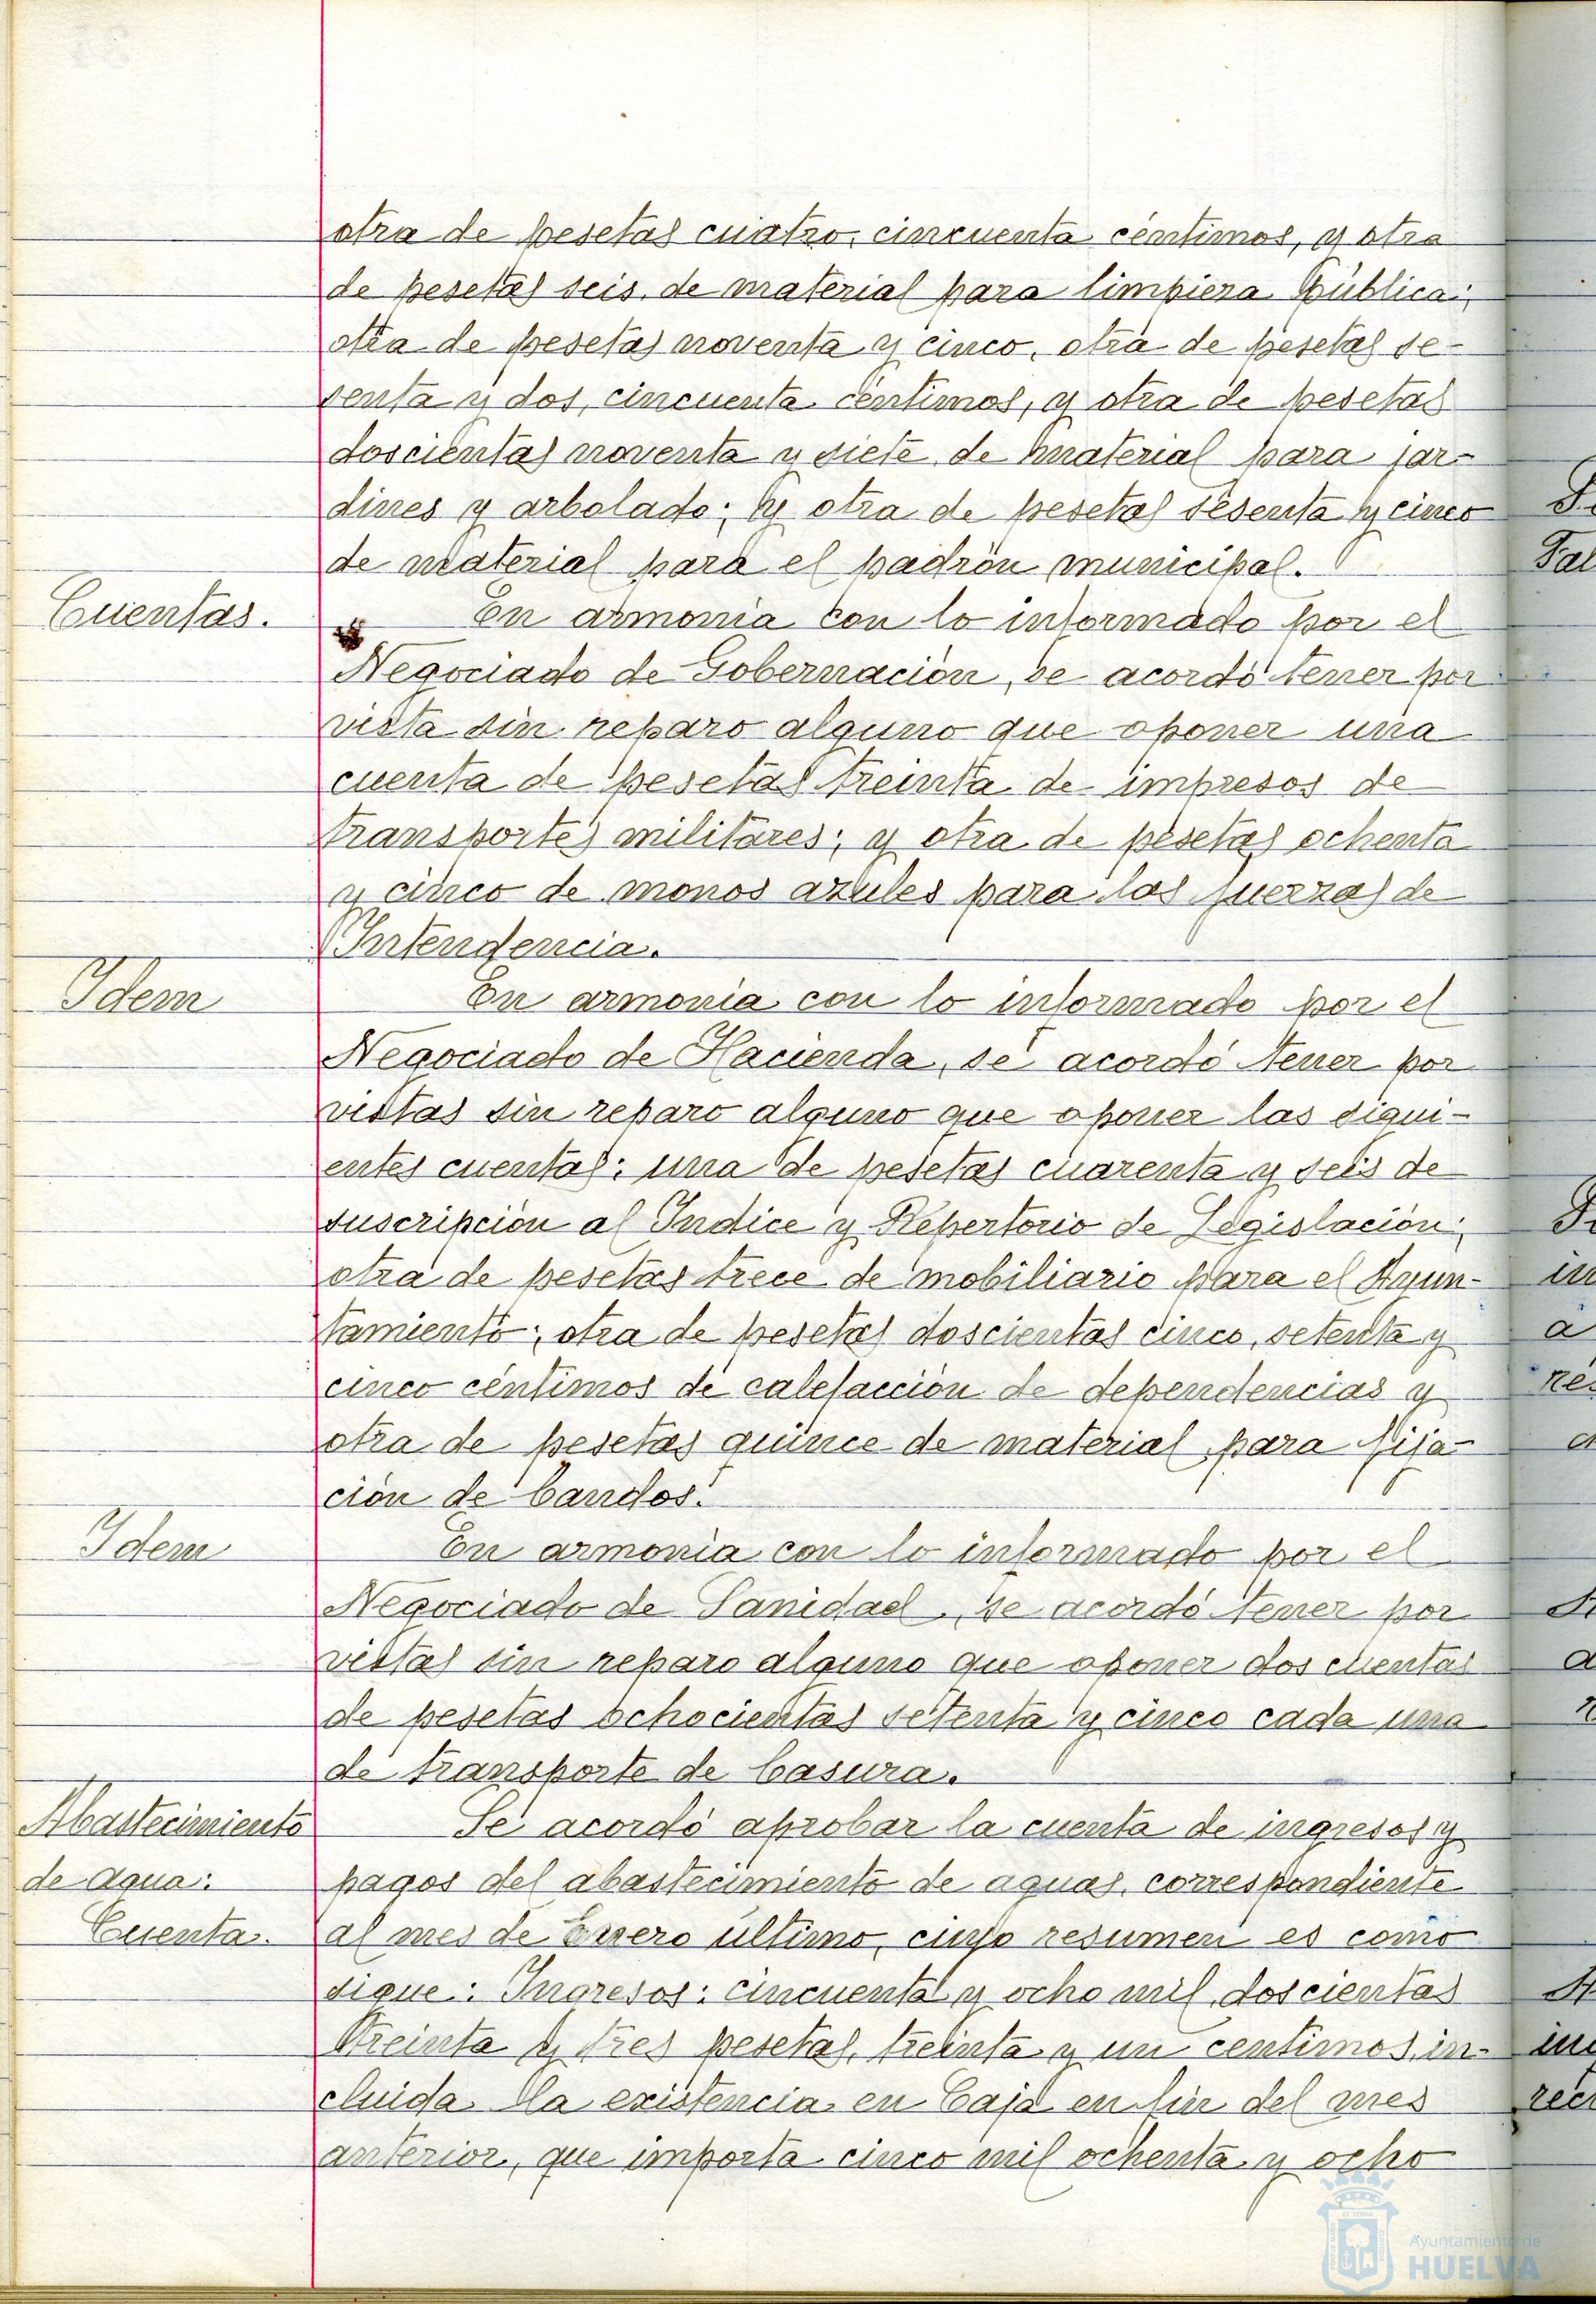 otra de pesetas cuatro, cincuenta céntimos, y otra
de pesetas seis, de material para limpieza Pública;
otra de pesetas noventa y cinco, otra de pesetas se-
senta y dos, cincuenta céntimos, y otra de pesetas
doscientas noventa y siete, de material para jar-
dines y arbolado; y otra de pesetas sesenta y cinco
de material para el padrón municipal.
Cuentas.
En armonía con lo informado por el
Negociado de Gobernación, se acordó tener por
vista sin reparo alguno que oponer una
cuenta de pesetas treinta de impresos de
transportes militares; y otra de pesetas ochenta
y cinco de monos azules para las fuerzas de
Intendencia.
Idem
En armonía con lo informado por el
Negociado de Hacienda, se acordó tener por
vistas sin reparo alguno que oponer las sigui-
entes cuentas: una de pesetas cuarenta y seis de
suscripción al Indice y Repertorio de Legislación;
otra de pesetas trece de mobiliario para el Ayun-
tamiento; otra de pesetas doscientas cinco, setenta y
cinco céntimos de calefacción de dependencias y
otra de pesetas quince de material para fija-
ción de bandos.
Idem
En armonía con lo informado por el
Negociado de Sanidad, se acordó tener por
vistas sin reparo alguno que oponer dos cuentas
de pesetas ochocientas setenta y cinco cada una
de transporte de basura.
Abastecimiento
de agua:
Cuenta.
Se acordó aprobar la cuenta de ingresos y
pagos del abastecimiento de aguas, correspondiente
al mes de Enero último, cuyo resumen es como
sigue: Ingresos: cincuenta y ocho mil, doscientas
treinta y tres pesetas, treinta y un centimos, in-
cluida la existencia en Caja en fin del mes
anterior, que importa cinco mil ochenta y ocho
Ayuntamiento de
HUELVA